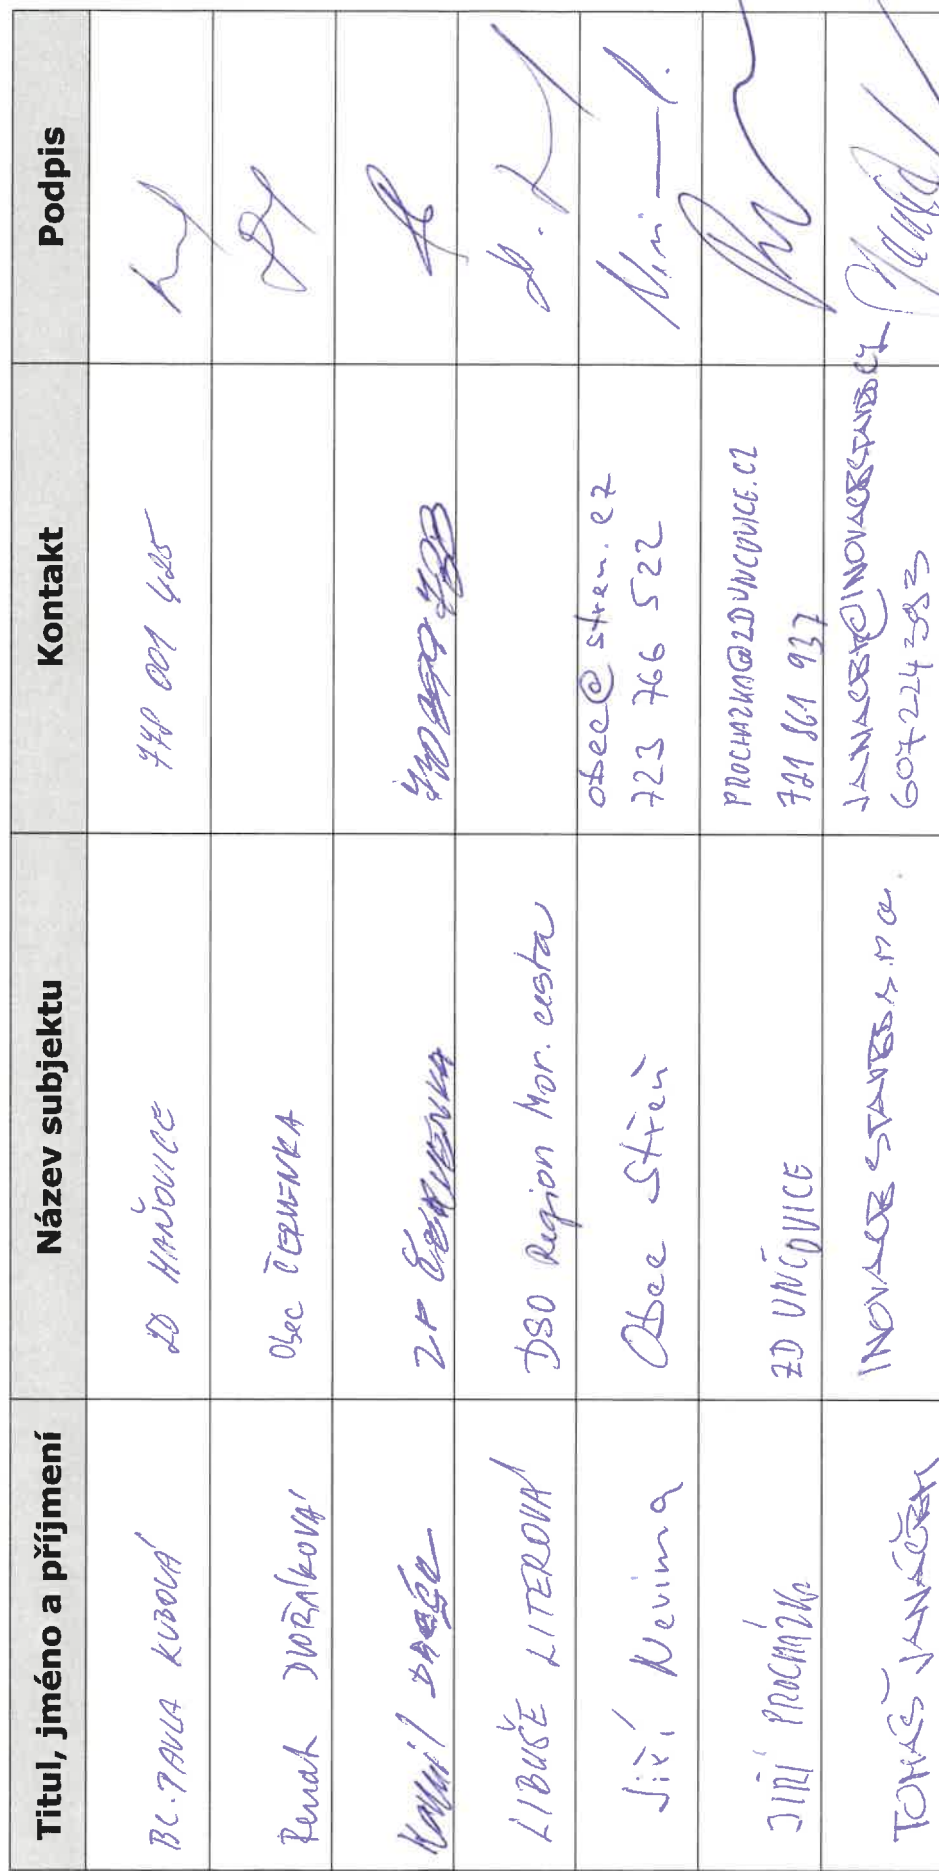 Titul, jméno a příjmení Název subjektu Kontakt Podpis
BC. PAVLA KUBOVÁ ZD HAŇOVICE 778 001 425
Renata DVOŘÁKOVÁ Obec ČERVENKA
Kamil ZP ČERVENKA
LIBUŠE LITEROVÁ DSO Region Mor. cesta
Jiří Nevima Obec Střeň obec@stren.cz
723 766 522
JIŘÍ PROCHÁZKA ZD UNČOVICE PROCHAZKA@ZDUNCOVICE.CZ
721 861 937
TOMÁŠ INOVACE STAVEB
607 224 383